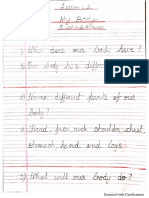 Lesson-2
My Body
1) What does our body have?
A) Our body has different
2) Name different parts of our
body?
A) Head, face, neck shoulder, chest,
stomach, hand and legs.
3) What will our body do?
Scanned with CamScanner